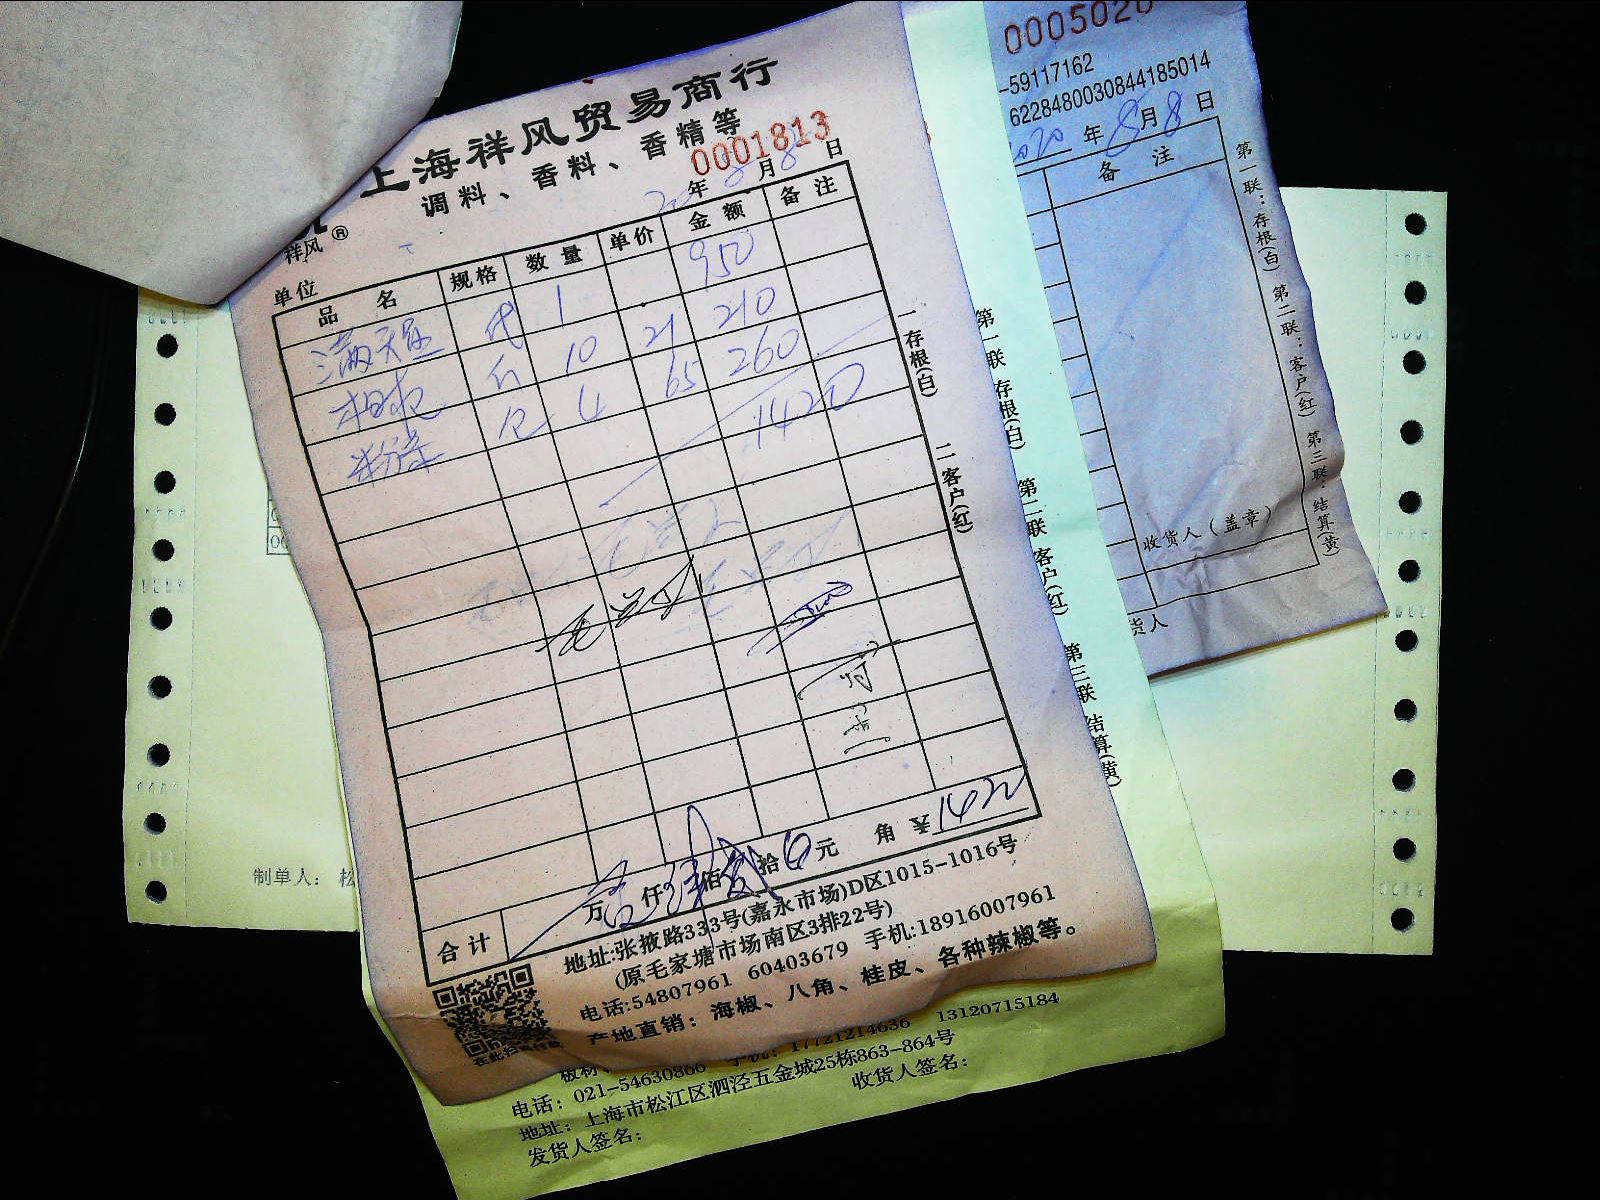 上海祥风贸易商行
调料、香料、香精等
0001813
祥风®
年 8月8日
单位
品名 规格 数量 单价 金额 备注
满天星 代 1 950
斤 10 21 210
斤 4 65 260
1420
合计 万 仟 佰 拾 元 角 1420
地址:张掖路333号(嘉永市场)D区1015-1016号
(原毛家塘市场南区3排22号)
电话:54807961 60403679 手机:18916007961
产地直销:海椒、八角、桂皮、各种辣椒等。
一存根(白) 二客户(红)
板材、
手机:17721214636 13120715184
电话:021-54630866
地址:上海市松江区泗泾五金城25栋863-864号
发货人签名: 收货人签名:
第一联存根(白) 第二联客户(红) 第三联结算(黄)
000502
-59117162
6228480030844185014
2020年8月8日
备注
收货人(盖章)
货人
第一联:存根(白) 第二联:客户(红) 第三联:结算(黄)
制单人: 松